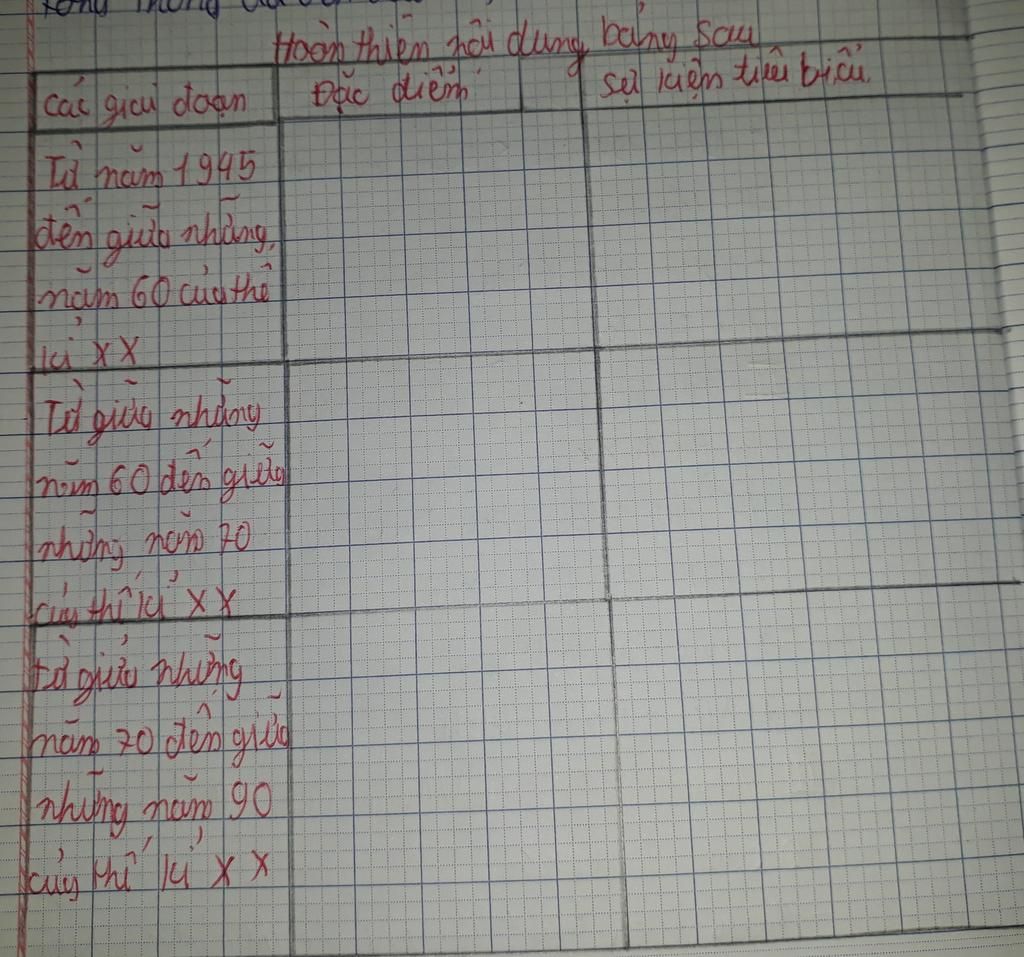 Hoàn thiện nội dung bảng sau
Các giai đoạn Đặc điểm sự kiện tiêu biểu.
Từ năm 1945
đến giữa những
năm 60 của thế
kỉ XX
Từ giữa những
năm 60 đến giữa
những năm 70
của thế kỉ XX
từ giữa những
năm 70 đến giữa
những năm 90
của thế kỉ XX